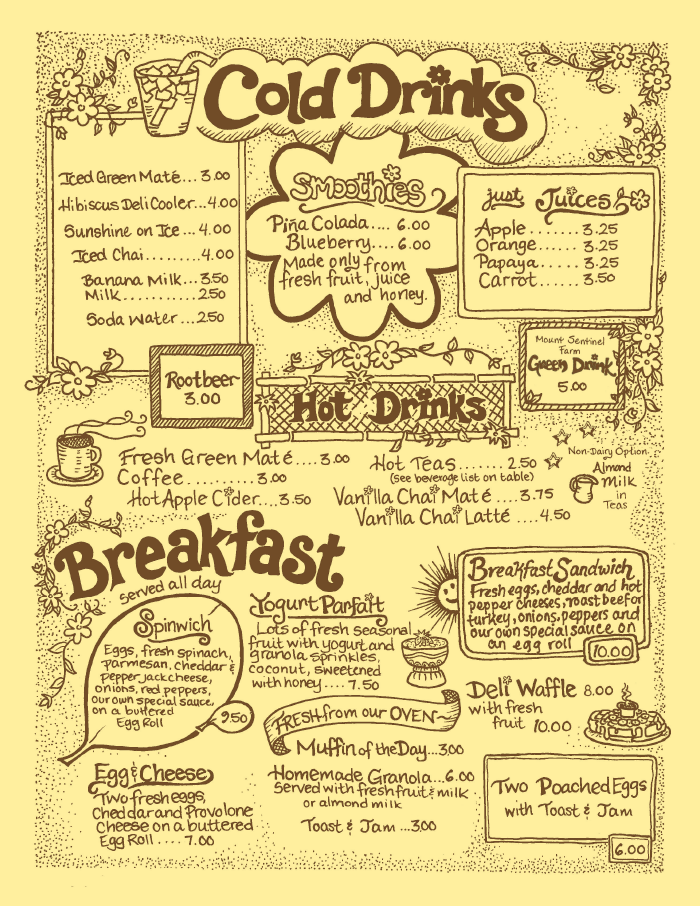 Cold Drinks
Iced Green Maté...3.00
Hibiscus Deli Cooler...4.00
Sunshine on Ice...4.00
Iced Chai........4.00
Banana Milk...3.50
Milk..........2.50
Soda Water...2.50
Smoothies
Piña Colada.... 6.00
Blueberry.... 6.00
Made only from
fresh fruit, juice
and honey.
just Juices
Apple....... 3.25
Orange...... 3.25
Papaya...... 3.25
Carrot...... 3.50
Rootbeer
3.00
Mount Sentinel
Farm
Green Drink
5.00
Hot Drinks
Fresh Green Maté....3.00
Coffee..........3.00
Hot Apple Cider....3.50
Hot Teas....... 2.50
(see beverage list on table)
Vanilla Chai Maté....3.75
Vanilla Chai Latté....4.50
Non-Dairy Option
Almond
Milk
in
Teas
Breakfast
served all day
Spinwich
Eggs, fresh spinach,
parmesan, cheddar &
pepper jack cheese,
onions, red peppers,
our own special sauce,
on a buttered
Egg Roll
9.50
Yogurt Parfait
Lots of fresh seasonal
fruit with yogurt and
granola sprinkles,
coconut, sweetened
with honey.... 7.50
Breakfast Sandwich
Fresh eggs, cheddar and hot
pepper cheeses, roast beef or
turkey, onions, peppers and
our own special sauce on
an egg roll
10.00
Deli Waffle 8.00
with fresh
fruit 10.00
FRESH from our OVEN~
Muffin of the Day...3.00
Homemade Granola...6.00
served with fresh fruit & milk
or almond milk
Toast & Jam ...3.00
Egg & Cheese
Two fresh eggs,
Cheddar and Provolone
Cheese on a buttered
Egg Roll.... 7.00
Two Poached Eggs
with Toast & Jam
6.00